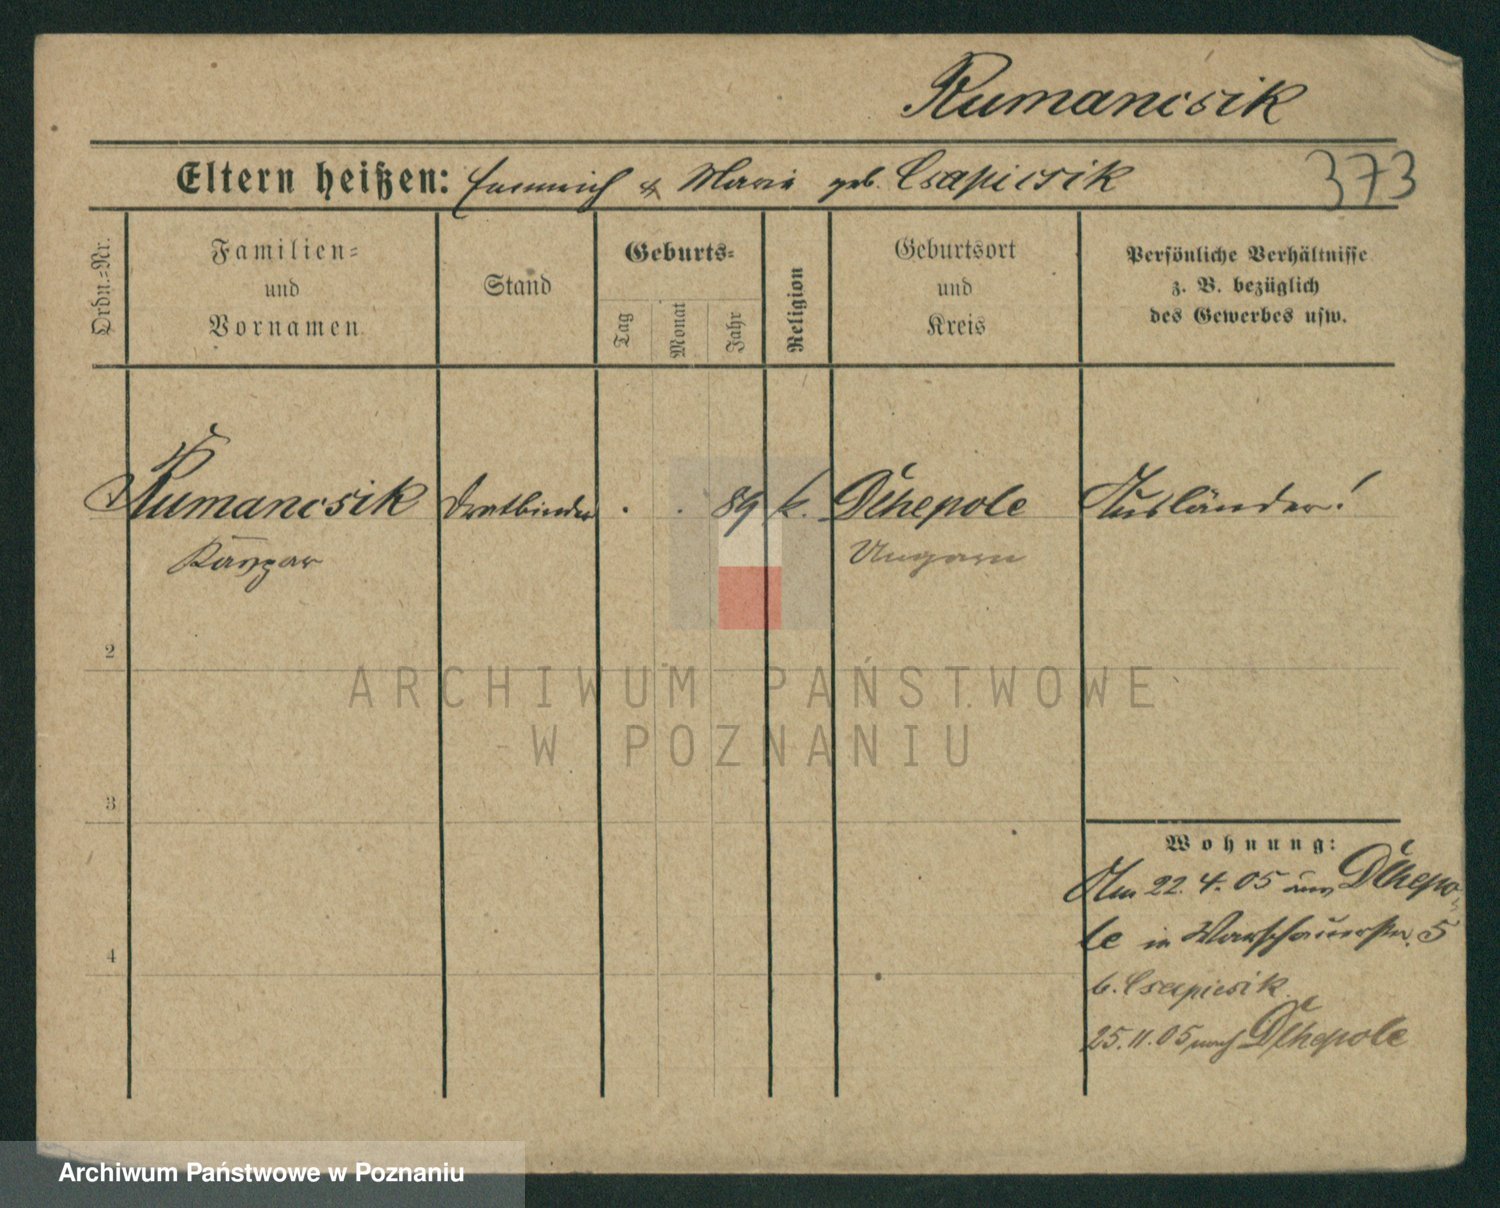 Rumancsik
Eltern heißen: Emmerich & Marie geb. Csapicsik
373
Ordn.-Nr.
Familien-
und
Vornamen
Stand
Geburts-
Tag
Monat
Jahr
Religion
Geburtsort
und
Kreis
Persönliche Verhältnisse
z. B. bezüglich
des Gewerbes usw.
Rumancsik Dratbinder . . 89 k. Dlhepole Ausländer!
Kaspar Ungarn
2
ARCHIWUM PAŃSTWOWE
W POZNANIU
3
Wohnung:
Am 22.4.05 aus Dlhepo-
le in Warschauerstr. 5
b. Csapicsik
4
25.11.05 nach Dlhepole
Archiwum Państwowe w Poznaniu